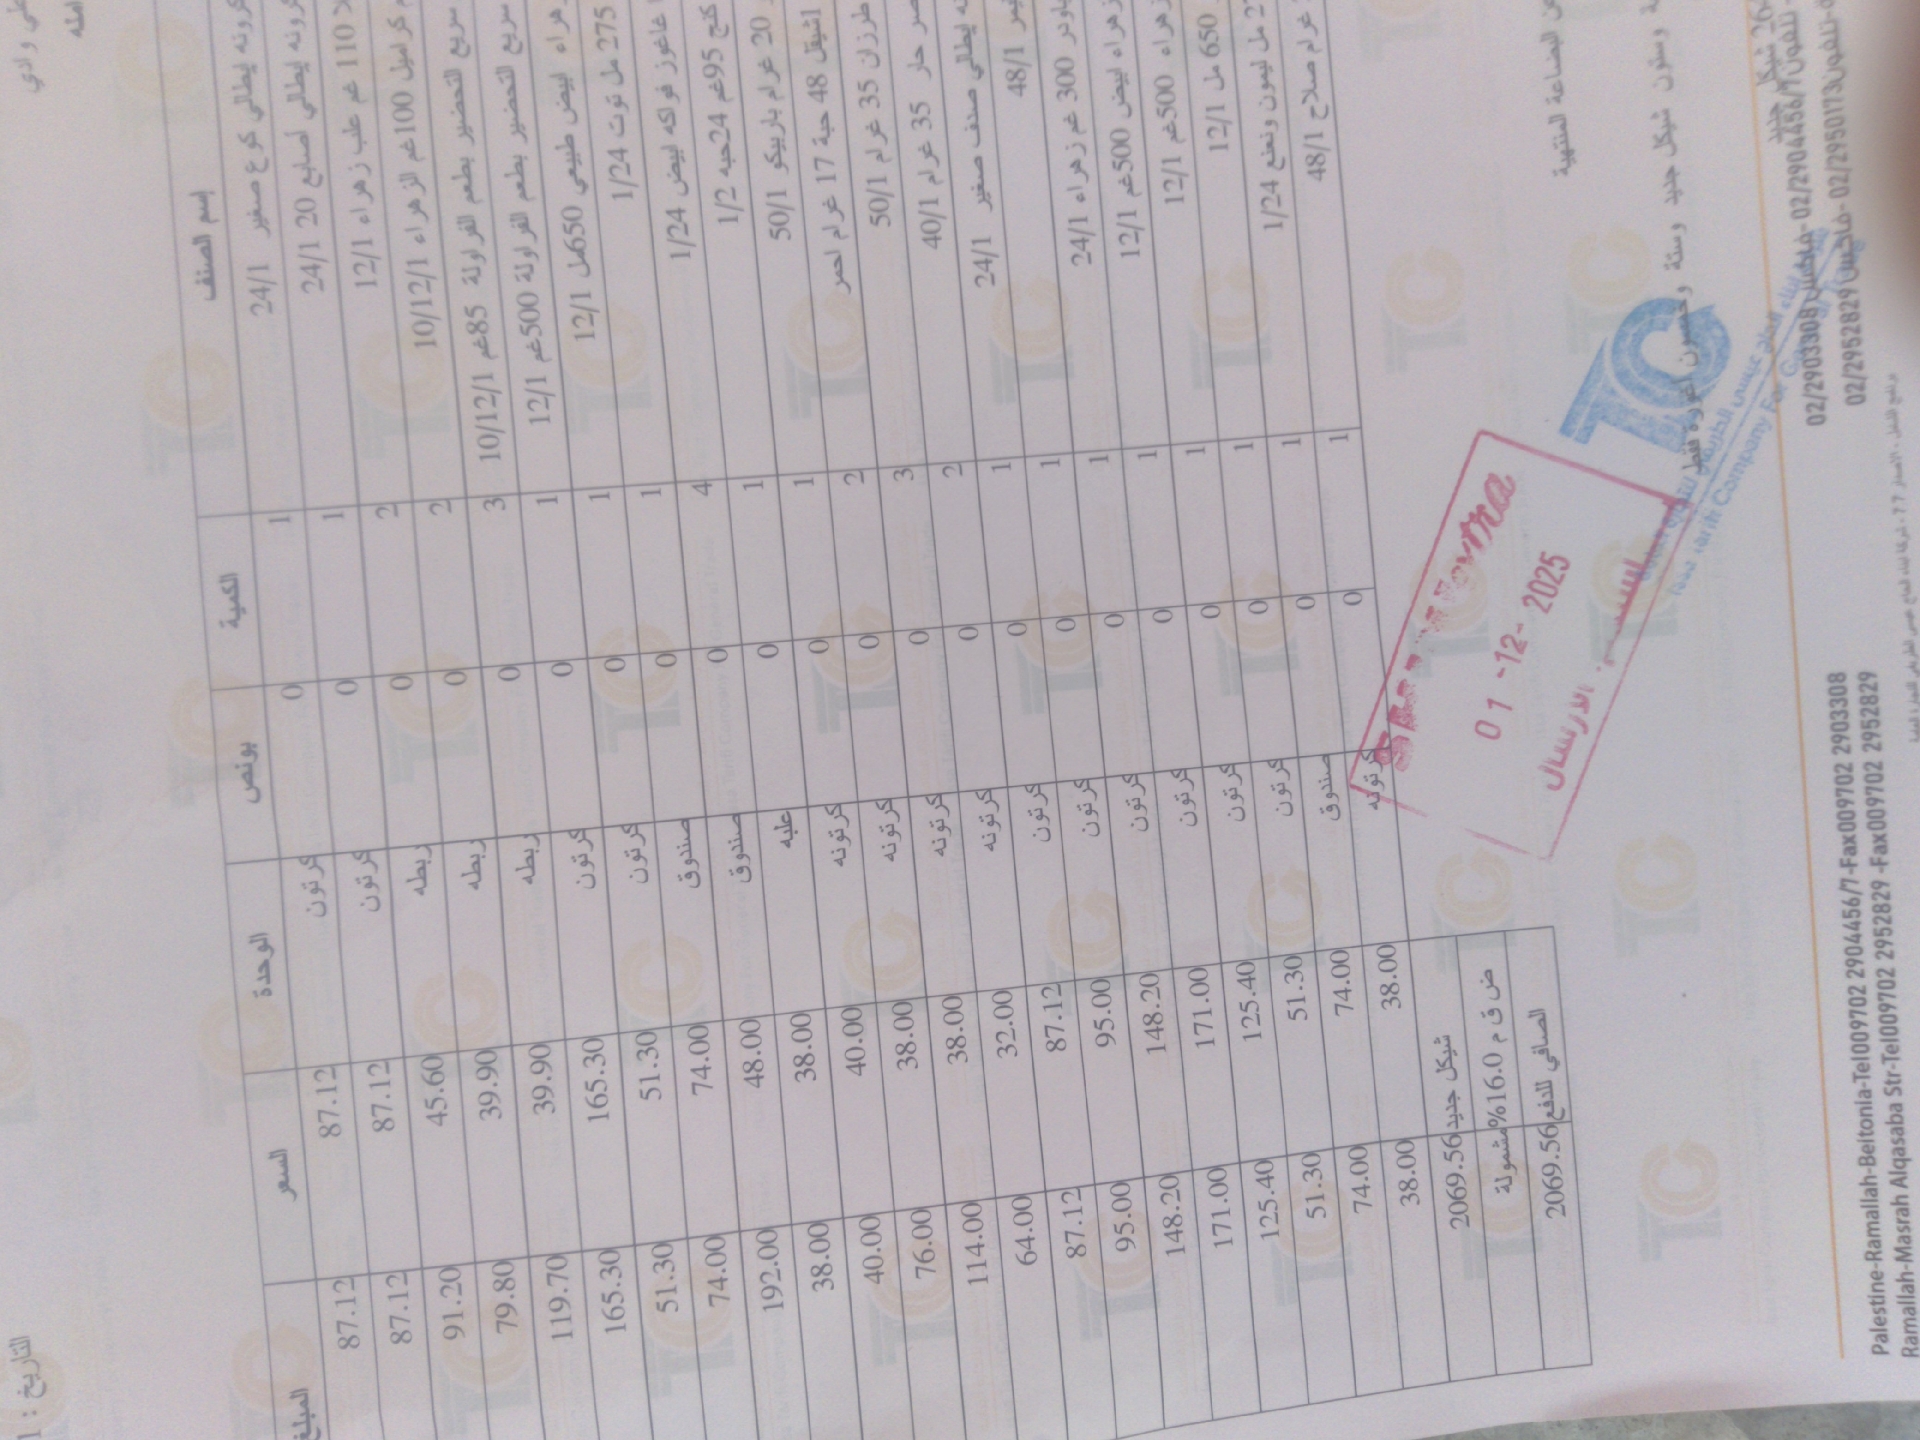 التاريخ : 1
المبلغ السعر الوحدة بونص الكمية إسم الصنف
87.12 87.12 كرتون 0 1 كرونه إيطالي كوع صغير 24/1
87.12 87.12 كرتون 0 1 كرونه إيطالي اصابع 20 24/1
91.20 45.60 ربطه 0 2 110 غم علب زهراء 12/1
79.80 39.90 ربطه 0 2 كراميل 100غم الزهراء 10/12/1
119.70 39.90 ربطه 0 3 سريع التحضير بطعم الفراولة 85غم 10/12/1
165.30 165.30 كرتون 0 1 سريع التحضير بطعم الفراولة 500غم 12/1
51.30 51.30 كرتون 0 1 زهراء ابيض طبيعي 650مل 12/1
74.00 74.00 صندوق 0 1 275 مل توت 1/24
192.00 48.00 صندوق 0 4 فواكه ابيض 1/24
38.00 38.00 علبه 0 1 95غم 24حبه 1/2
40.00 40.00 كرتونه 0 1 20 غرام باربيكو 50/1
76.00 38.00 كرتونه 0 2 48 حبة 17 غرام احمر
114.00 38.00 كرتونه 0 3 طرزان 35 غرام 50/1
64.00 32.00 كرتونه 0 2 حار 35 غرام 40/1
87.12 87.12 كرتون 0 1 إيطالي صدف صغير 24/1
95.00 95.00 كرتون 0 1 48/1
148.20 148.20 كرتون 0 1 باودر 300 غم زهراء 24/1
171.00 171.00 كرتون 0 1 زهراء ابيض 500غم 12/1
125.40 125.40 كرتون 0 1 زهراء 500غم 12/1
51.30 51.30 كرتون 0 1 650 مل 12/1
74.00 74.00 صندوق 0 1 مل ليمون ونعنع 1/24
38.00 38.00 كرتونه 0 1 غرام صلاح 48/1
2069.56 شيكل جديد
ض ق م 16.0% مشمولة
2069.56 الصافي للدفع
وستون شيكل جديد وستة وخمسون اغورة فقط
البضاعة المنتهية
01-12-2025
الارسال
TC
Palestine-Ramallah-Beitonia-Tel009702 2904456/7-Fax009702 2903308
Ramallah-Masrah Alqasaba Str-Tel009702 2952829 -Fax009702 2952829
تلفون 02/2904456/7 -فاكس 02/2903308
تلفون 02/2950173 -فاكس 02/2952829